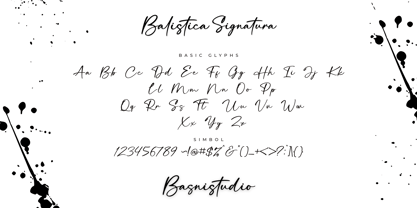 Balistica Signatura
BASIC GLYPHS
Aa Bb Cc Dd Ee Ff Gg Hh Ii Jj Kk
Ll Mm Nn Oo Pp
Qq Rr Ss Tt Uu Vv Ww
Xx Yy Zz
SIMBOL
123456789 ~!@#$%^&*()_+<>?:"{}
Basnistudio